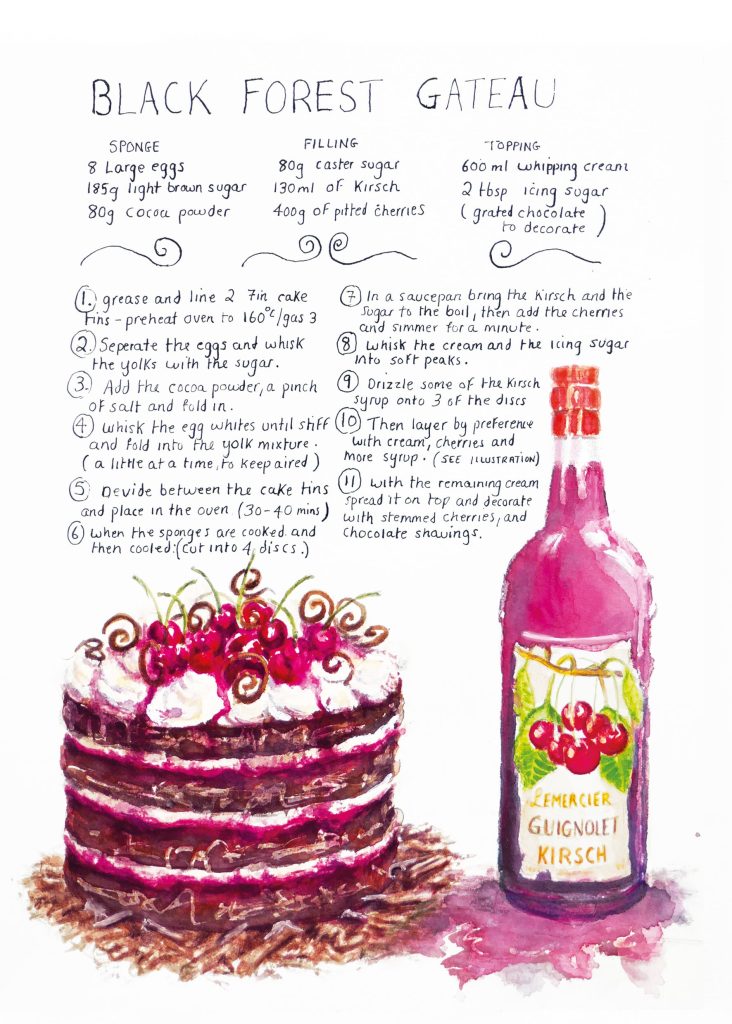 BLACK FOREST GATEAU
SPONGE
8 Large eggs
185g light brown sugar
80g cocoa powder
FILLING
80g caster sugar
130ml of Kirsch
400g of pitted cherries
TOPPING
600ml whipping cream
2 tbsp icing sugar
(grated chocolate
to decorate)
1. grease and line 2 7in cake
tins - preheat oven to 160°c/gas 3
2. Seperate the eggs and whisk
the yolks with the sugar.
3. Add the cocoa powder, a pinch
of salt and fold in.
4 whisk the egg whites until stiff
and fold into the yolk mixture.
(a little at a time, to keep aired)
5 Devide between the cake tins
and place in the oven (30-40 mins)
6 when the sponges are cooked and
then cooled: (cut into 4 discs.)
7 In a saucepan bring the Kirsch and the
sugar to the boil, then add the cherries
and simmer for a minute.
8 whisk the cream and the icing sugar
into soft peaks.
9 Drizzle some of the Kirsch
syrup onto 3 of the discs
10 Then layer by preference
with cream, cherries and
more syrup. (SEE ILLUSTRATION)
11 with the remaining cream
spread it on top and decorate
with stemmed cherries, and
chocolate shavings.
LEMERCIER
GUIGNOLET
KIRSCH